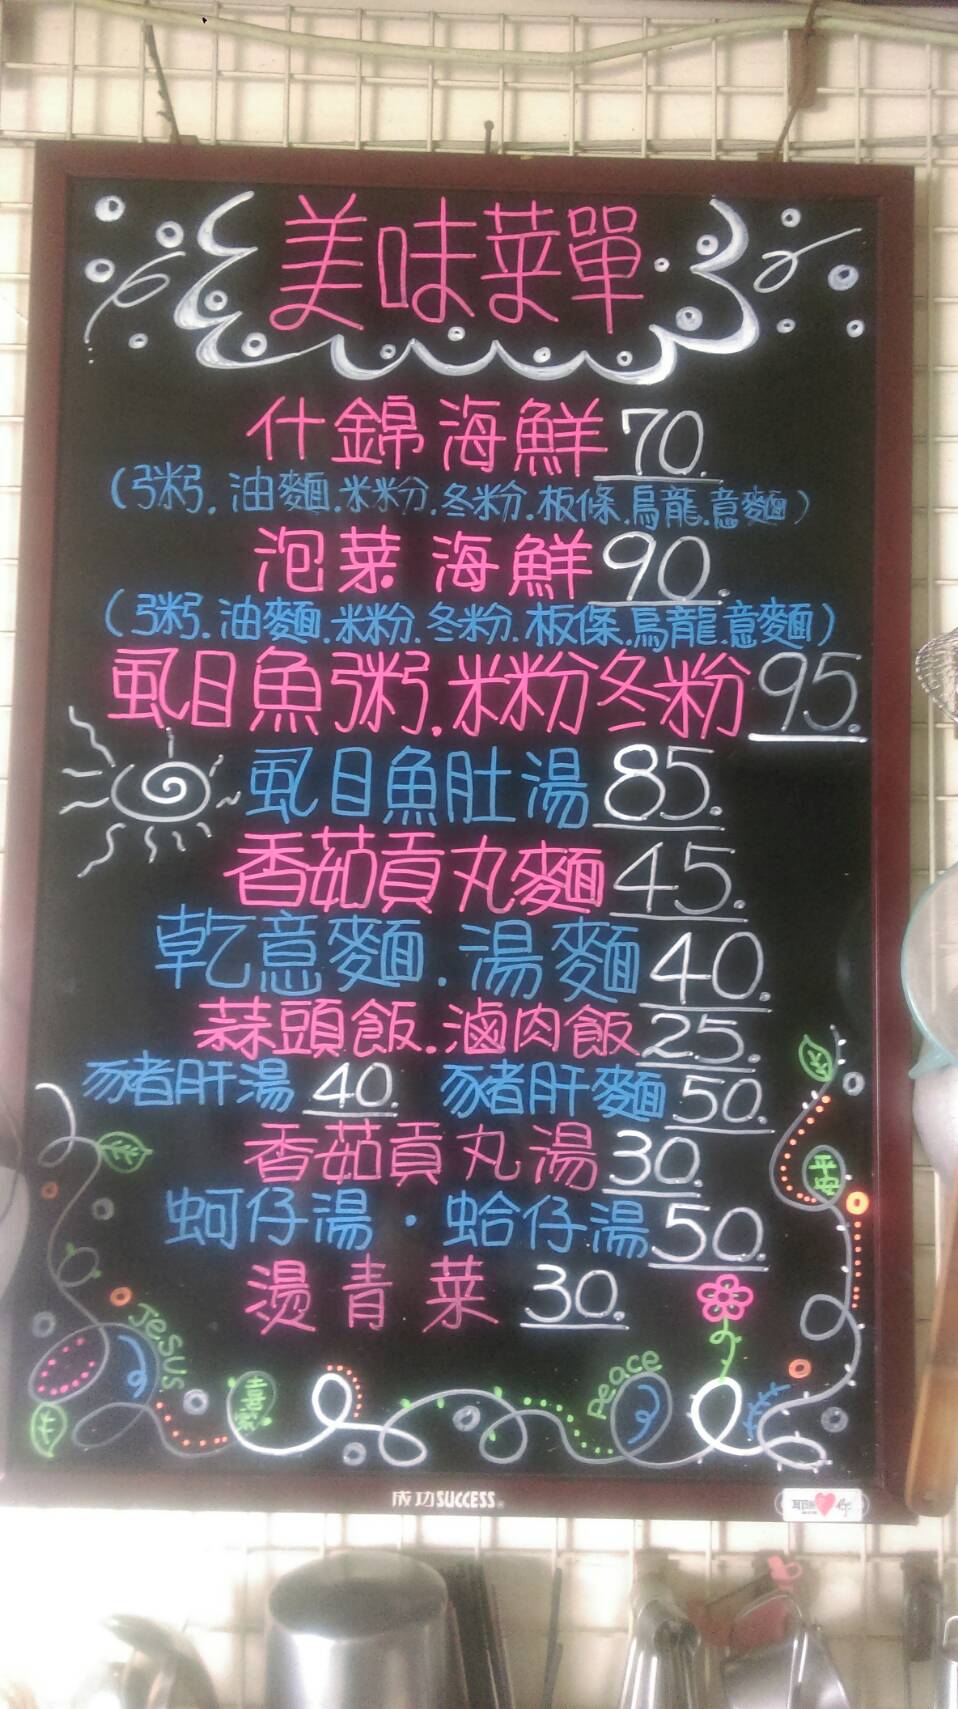 美味菜單
什錦海鮮70.
(粥.油麵.米粉.冬粉.板條.烏龍.意麵)
泡菜海鮮90.
(粥.油麵.米粉.冬粉.板條.烏龍.意麵)
虱目魚粥.米粉冬粉95.
虱目魚肚湯85.
香茹貢丸麵45.
乾意麵.湯麵40.
蒜頭飯.滷肉飯25.
豬肝湯40. 豬肝麵50.
香茹貢丸湯30.
蚵仔湯·蛤仔湯50.
燙青菜30.
平安
Jesus
喜樂
Peace
成功SUCCESS